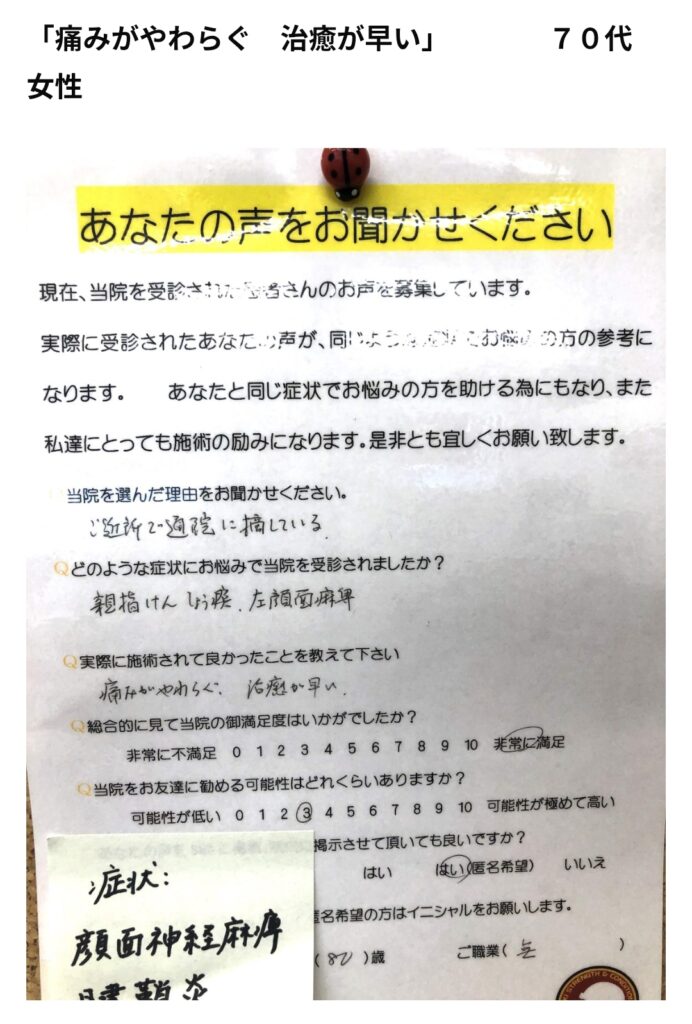 「痛みがやわらぐ　治癒が早い」　　　　７０代
女性
あなたの声をお聞かせください
現在、当院を受診された患者さんのお声を募集しています。
実際に受診されたあなたの声が、同じような症状でお悩みの方の参考に
なります。　あなたと同じ症状でお悩みの方を助ける為にもなり、また
私達にとっても施術の励みになります。是非とも宜しくお願い致します。
当院を選んだ理由をお聞かせください。
ご近所で通院に摘している
Qどのような症状にお悩みで当院を受診されましたか？
親指けんしょう炎、左顔面麻痺
Q実際に施術されて良かったことを教えて下さい
痛みがやわらぐ、治癒が早い、
Q総合的に見て当院の御満足度はいかがでしたか？
非常に不満足 0 1 2 3 4 5 6 7 8 9 10 非常に満足
Q当院をお友達に勧める可能性はどれくらいありますか？
可能性が低い 0 1 2 3 4 5 6 7 8 9 10 可能性が極めて高い
掲示させて頂いても良いですか？
はい　はい(匿名希望)　いいえ
匿名希望の方はイニシャルをお願いします。
(80)歳　ご職業(無　)
症状：
顔面神経麻痺
腱鞘炎
STRENGTH & CONDITI